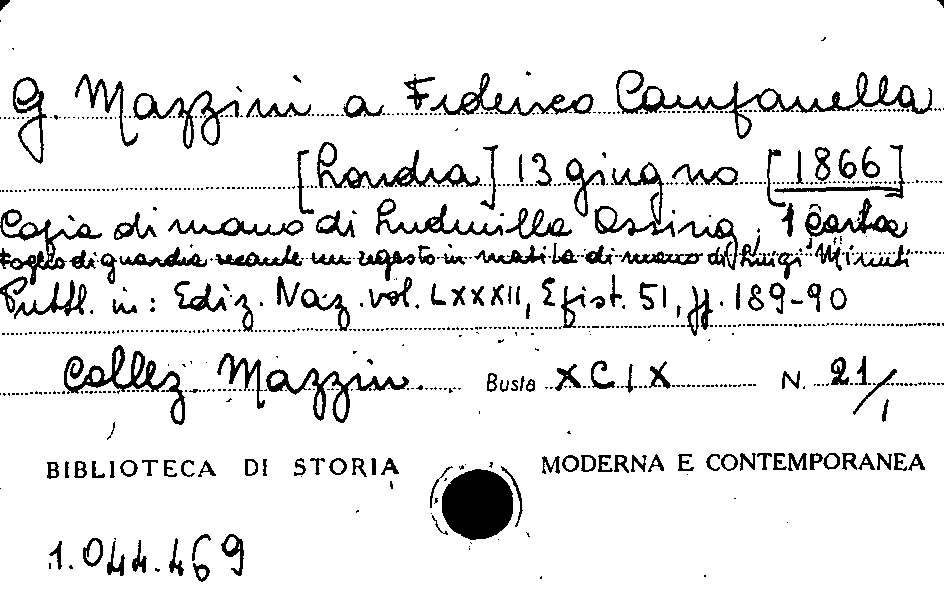 G. Mazzini a Federico Campanella
[Londra] 13 giugno [1866]
Copia di mano di Ludmilla Assing, 1 carta
Foglio di guardia recante un regesto in matita di mano di Luigi Minuti
Pubbl. in: Ediz. Naz. vol. LXXXII, Epist. 51, pp. 189-90
Collez. Mazzini. Busta XCIX N. 21/1
BIBLIOTECA DI STORIA MODERNA E CONTEMPORANEA
1.044.469